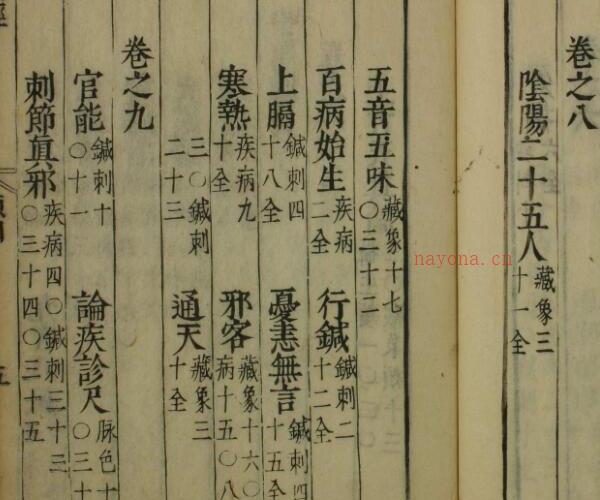 卷之八
陰陽二十五人 藏象三
十一全
五音五味 藏象十七
〇三十二
百病始生 疾病
二全
行鍼 鍼刺二
十二全
上膈 鍼刺四
十八全
憂恚無言 鍼刺四
十五全
寒熱 疾病九
十全
邪客 藏象十六〇
病十五〇八
三〇鍼刺
二十三
通天 藏象三
十全
卷之九
官能 鍼刺十
〇十一
論疾診尺 脉色十
〇三十
刺節真邪 疾病四〇鍼刺三十三
〇三十四〇三十五
nayona.cn